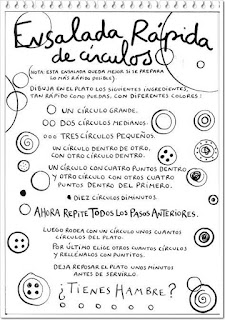 Ensalada Rápida
de círculos
(NOTA: ESTA ENSALADA QUEDA MEJOR SI SE PREPARA
LO MÁS RÁPIDO POSIBLE).
DIBUJA EN EL PLATO LOS SIGUIENTES INGREDIENTES,
TAN RÁPIDO COMO PUEDAS, CON DIFERENTES COLORES:
UN CÍRCULO GRANDE.
DOS CÍRCULOS MEDIANOS.
TRES CÍRCULOS PEQUEÑOS.
UN CÍRCULO DENTRO DE OTRO,
CON OTRO CÍRCULO DENTRO.
UN CÍRCULO CON CUATRO PUNTOS DENTRO
Y OTRO CÍRCULO CON OTROS CUATRO
PUNTOS DENTRO DEL PRIMERO.
DIEZ CÍRCULOS DIMINUTOS.
AHORA REPITE TODOS LOS PASOS ANTERIORES.
LUEGO RODEA CON UN CÍRCULO UNOS CUANTOS
CÍRCULOS DEL PLATO.
POR ÚLTIMO ELIGE OTROS CUANTOS CÍRCULOS
Y RELLÉNALOS CON PUNTITOS.
DEJA REPOSAR EL PLATO UNOS MINUTOS
ANTES DE SERVIRLO.
¿TIENES HAMBRE?